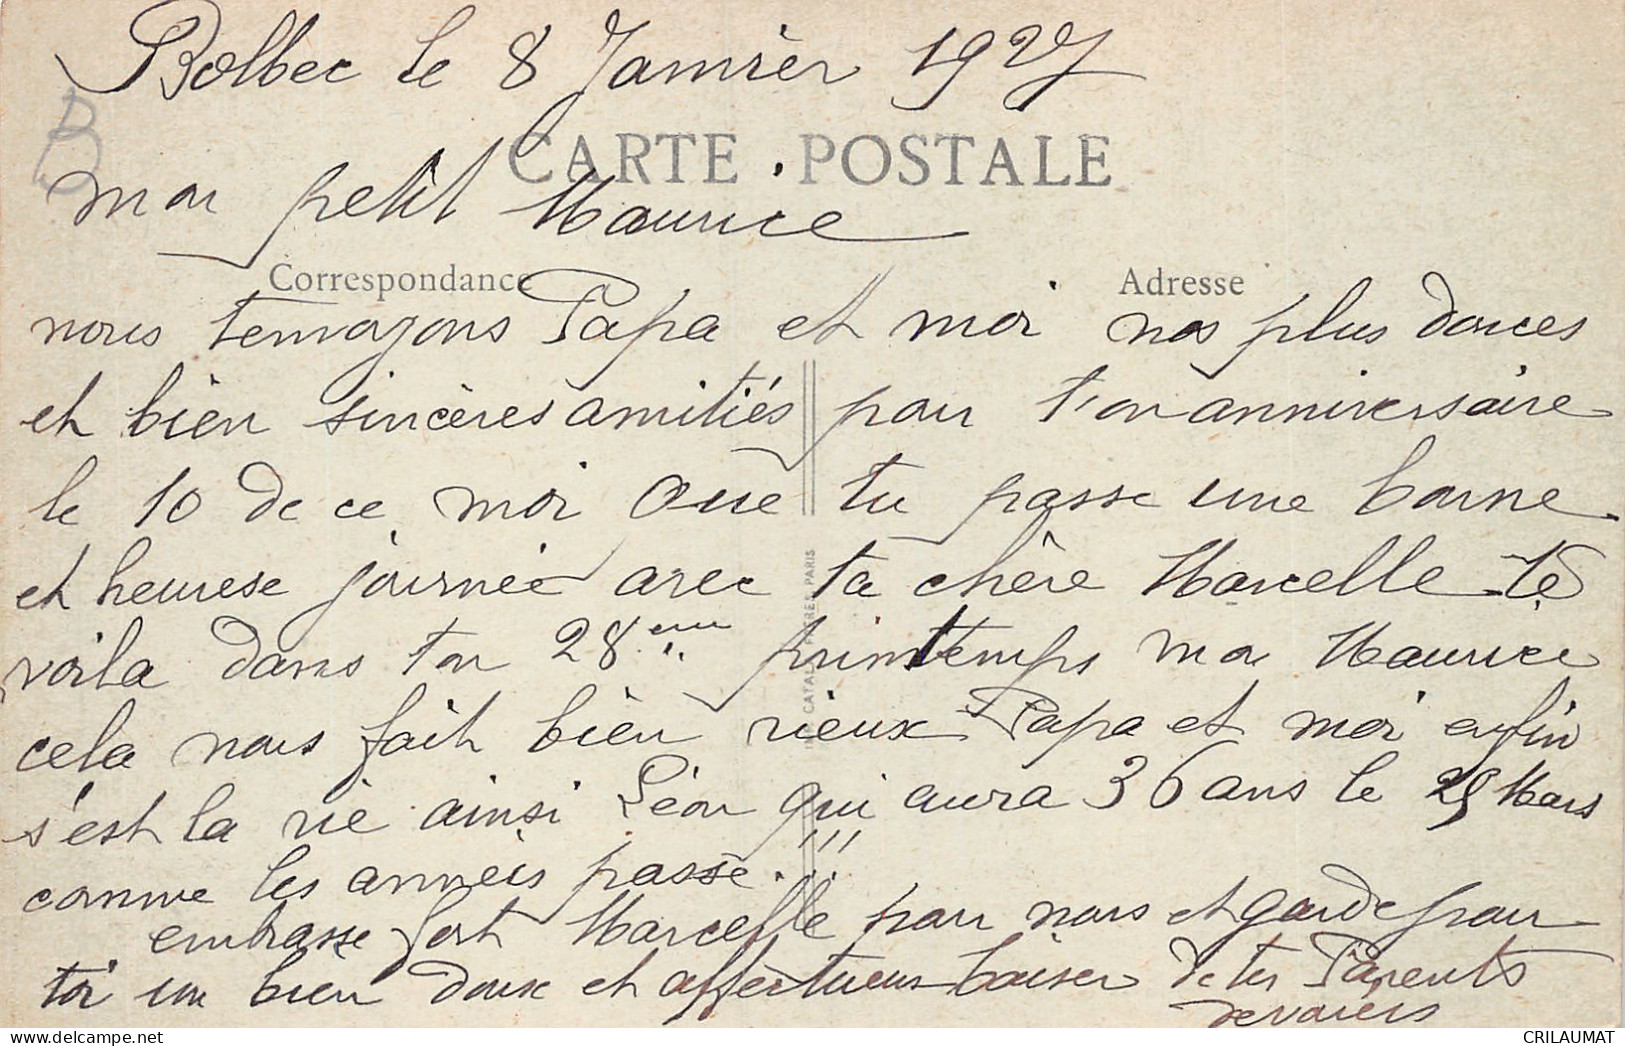 Bolbec le 8 Janvièr 1927
CARTE POSTALE
mon petit Maurice
Correspondance
Adresse
nous temoayons Papa et moi nos plus douces
et bièn sincères amitiés pour t'on anniversaire
le 10 de ce moi Que tu passe une bonne
et heurese journée avec ta chère Marcelle te
voila dans ton 28ème printemps mon Maurice
cela nous fait bièn vieux Papa et moi enfin
s'est la vie ainsi Léon qui aura 36 ans le 29 Mars
comme les anneès passe.!!!
embrasse fort Marcelle pour nous et garde pour
toi un bièn doux et affectueux baiser de tes Parents
PARIS
CRILAUMAT